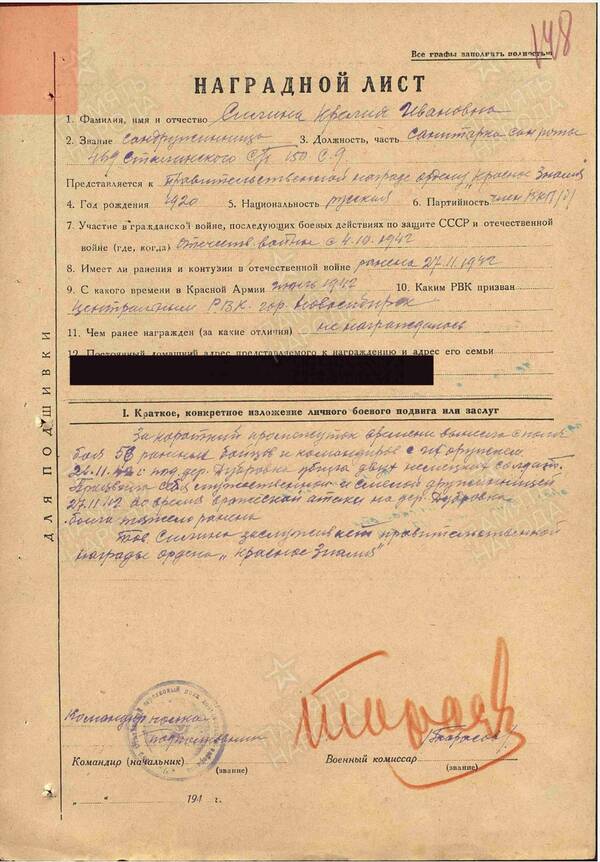 148
Все графы заполнять полностью
НАГРАДНОЙ ЛИСТ
1. Фамилия, имя и отчество Силина Ивановна
2. Звание сандружинница 3. Должность, часть санитарка сан роты
469 Сталинского СП 150 с.д.
Представляется к Правительственной награде ордену "Красное Знамя"
4. Год рождения 1920 5. Национальность русская 6. Партийность член ВКП(б)
7. Участие в гражданской войне, последующих боевых действиях по защите СССР и отечественной
войне (где, когда) Отечеств. война с 4.10.1942
8. Имеет ли ранения и контузии в отечественной войне ранена 27.11.1942
9. С какого времени в Красной Армии июль 1942 10. Каким РВК призван
Центральным РВК гор. Новосибирск
11. Чем ранее награжден (за какие отличия) не награждалась
12. Постоянный домашний адрес представляемого к награждению и адрес его семьи
ДЛЯ ПОДШИВКИ
I. Краткое, конкретное изложение личного боевого подвига или заслуг
За короткий промежуток времени вынесла с поля
боя 56 раненых бойцов и командиров с их оружием.
24.11.42 г. под дер. Дубровка убила двух немецких солдат.
Проявила себя мужественной и смелой дружинницей
27.11.42 во время вражеской атаки на дер. Дубровка
была тяжело ранена
Тов. Силина заслуживает правительственной
награды ордена "Красное Знамя"
Командир полка
подполковник
Командир (начальник)
(звание)
Военный комиссар
(звание)
" " 194 г.
ПАМЯТЬ
НАРОДА